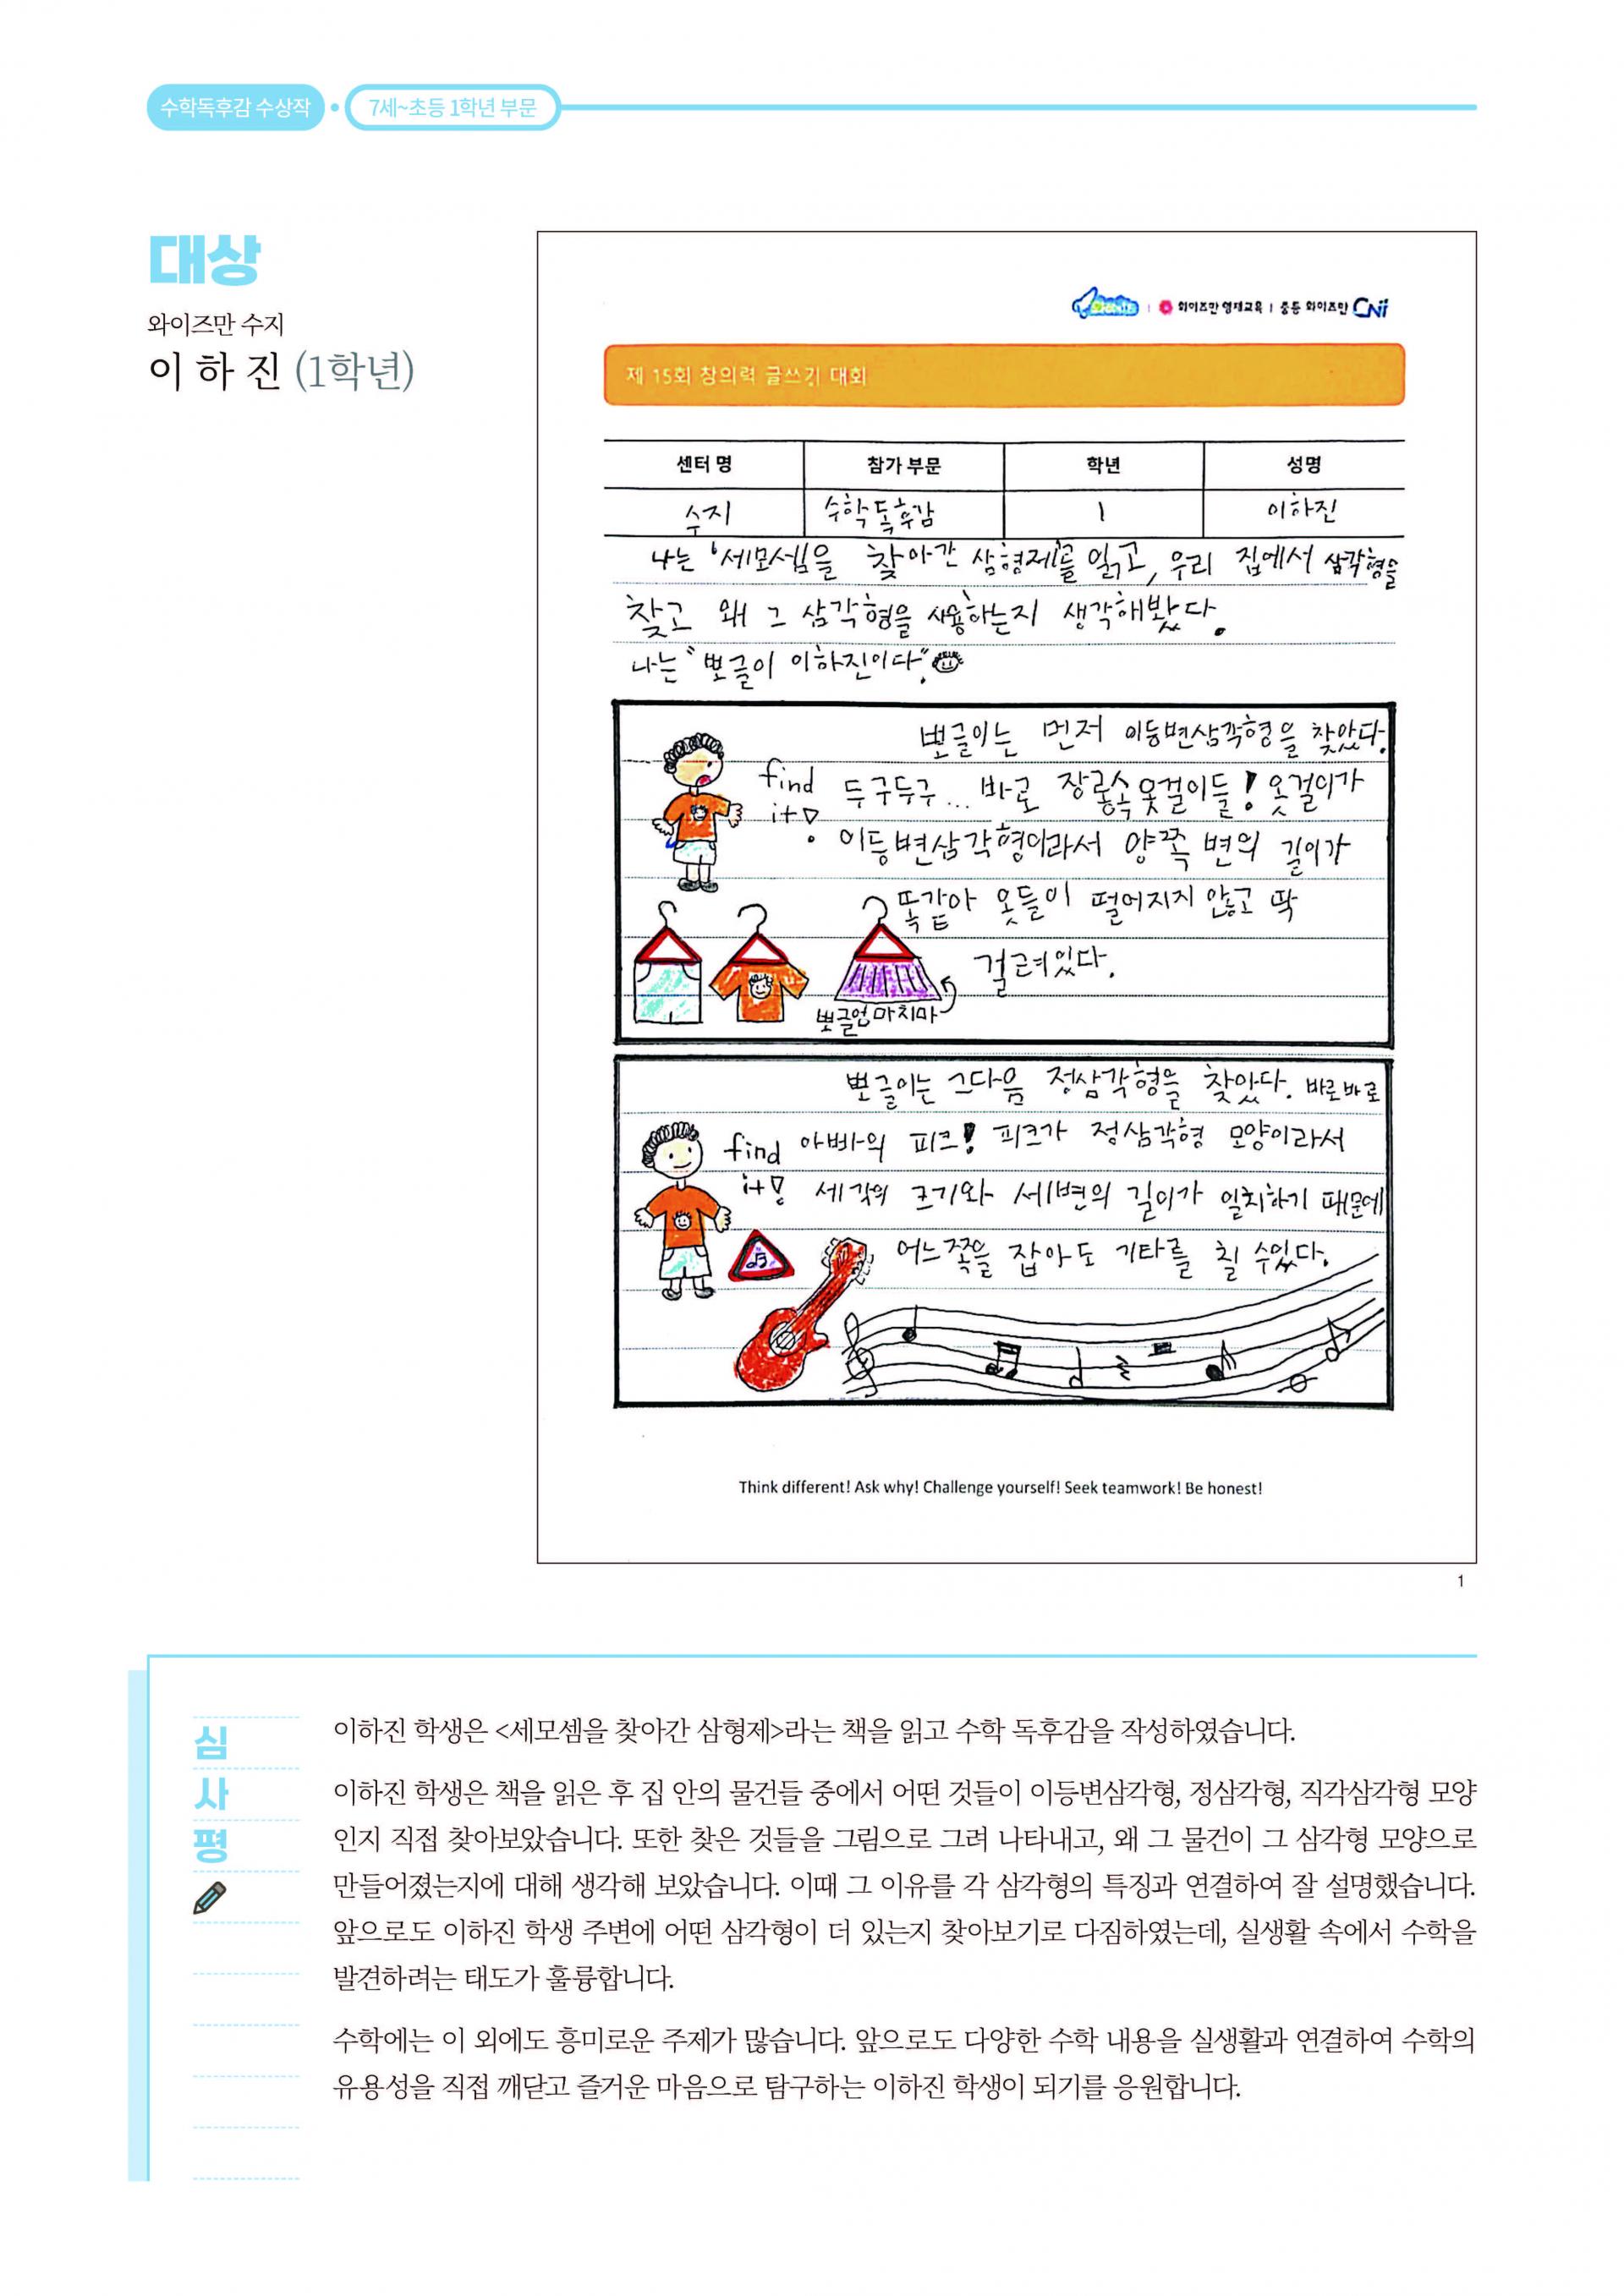 수학독후감 수상작 • 7세~초등 1학년 부문
대상
와이즈만 수지
이 하 진 (1학년)
와이즈만 영재교육 | 중등 와이즈만 CNii
제 15회 창의력 글쓰기 대회
센터 명 참가 부문 학년 성명
수지 수학독후감 1 이하진
나는 '세모셈을 찾아간 삼형제'를 읽고, 우리 집에서 삼각형을
찾고 왜 그 삼각형을 사용하는지 생각해봤다.
나는 "뽀글이 이하진이다".
뽀글이는 먼저 이등변삼각형을 찾았다.
find 두구두구... 바로 장롱속 옷걸이들! 옷걸이가
it! 이등변삼각형이라서 양쪽 변의 길이가
똑같아 옷들이 떨어지지 않고 딱
걸려있다.
뽀글엄마치마
뽀글이는 그다음 정삼각형을 찾았다. 바로바로
find 아빠의 피크! 피크가 정삼각형 모양이라서
it! 세각의 크기와 세변의 길이가 일치하기 때문에
어느쪽을 잡아도 기타를 칠 수있다.
Think different! Ask why! Challenge yourself! Seek teamwork! Be honest!
1
심사평
이하진 학생은 <세모셈을 찾아간 삼형제>라는 책을 읽고 수학 독후감을 작성하였습니다.
이하진 학생은 책을 읽은 후 집 안의 물건들 중에서 어떤 것들이 이등변삼각형, 정삼각형, 직각삼각형 모양
인지 직접 찾아보았습니다. 또한 찾은 것들을 그림으로 그려 나타내고, 왜 그 물건이 그 삼각형 모양으로
만들어졌는지에 대해 생각해 보았습니다. 이때 그 이유를 각 삼각형의 특징과 연결하여 잘 설명했습니다.
앞으로도 이하진 학생 주변에 어떤 삼각형이 더 있는지 찾아보기로 다짐하였는데, 실생활 속에서 수학을
발견하려는 태도가 훌륭합니다.
수학에는 이 외에도 흥미로운 주제가 많습니다. 앞으로도 다양한 수학 내용을 실생활과 연결하여 수학의
유용성을 직접 깨닫고 즐거운 마음으로 탐구하는 이하진 학생이 되기를 응원합니다.